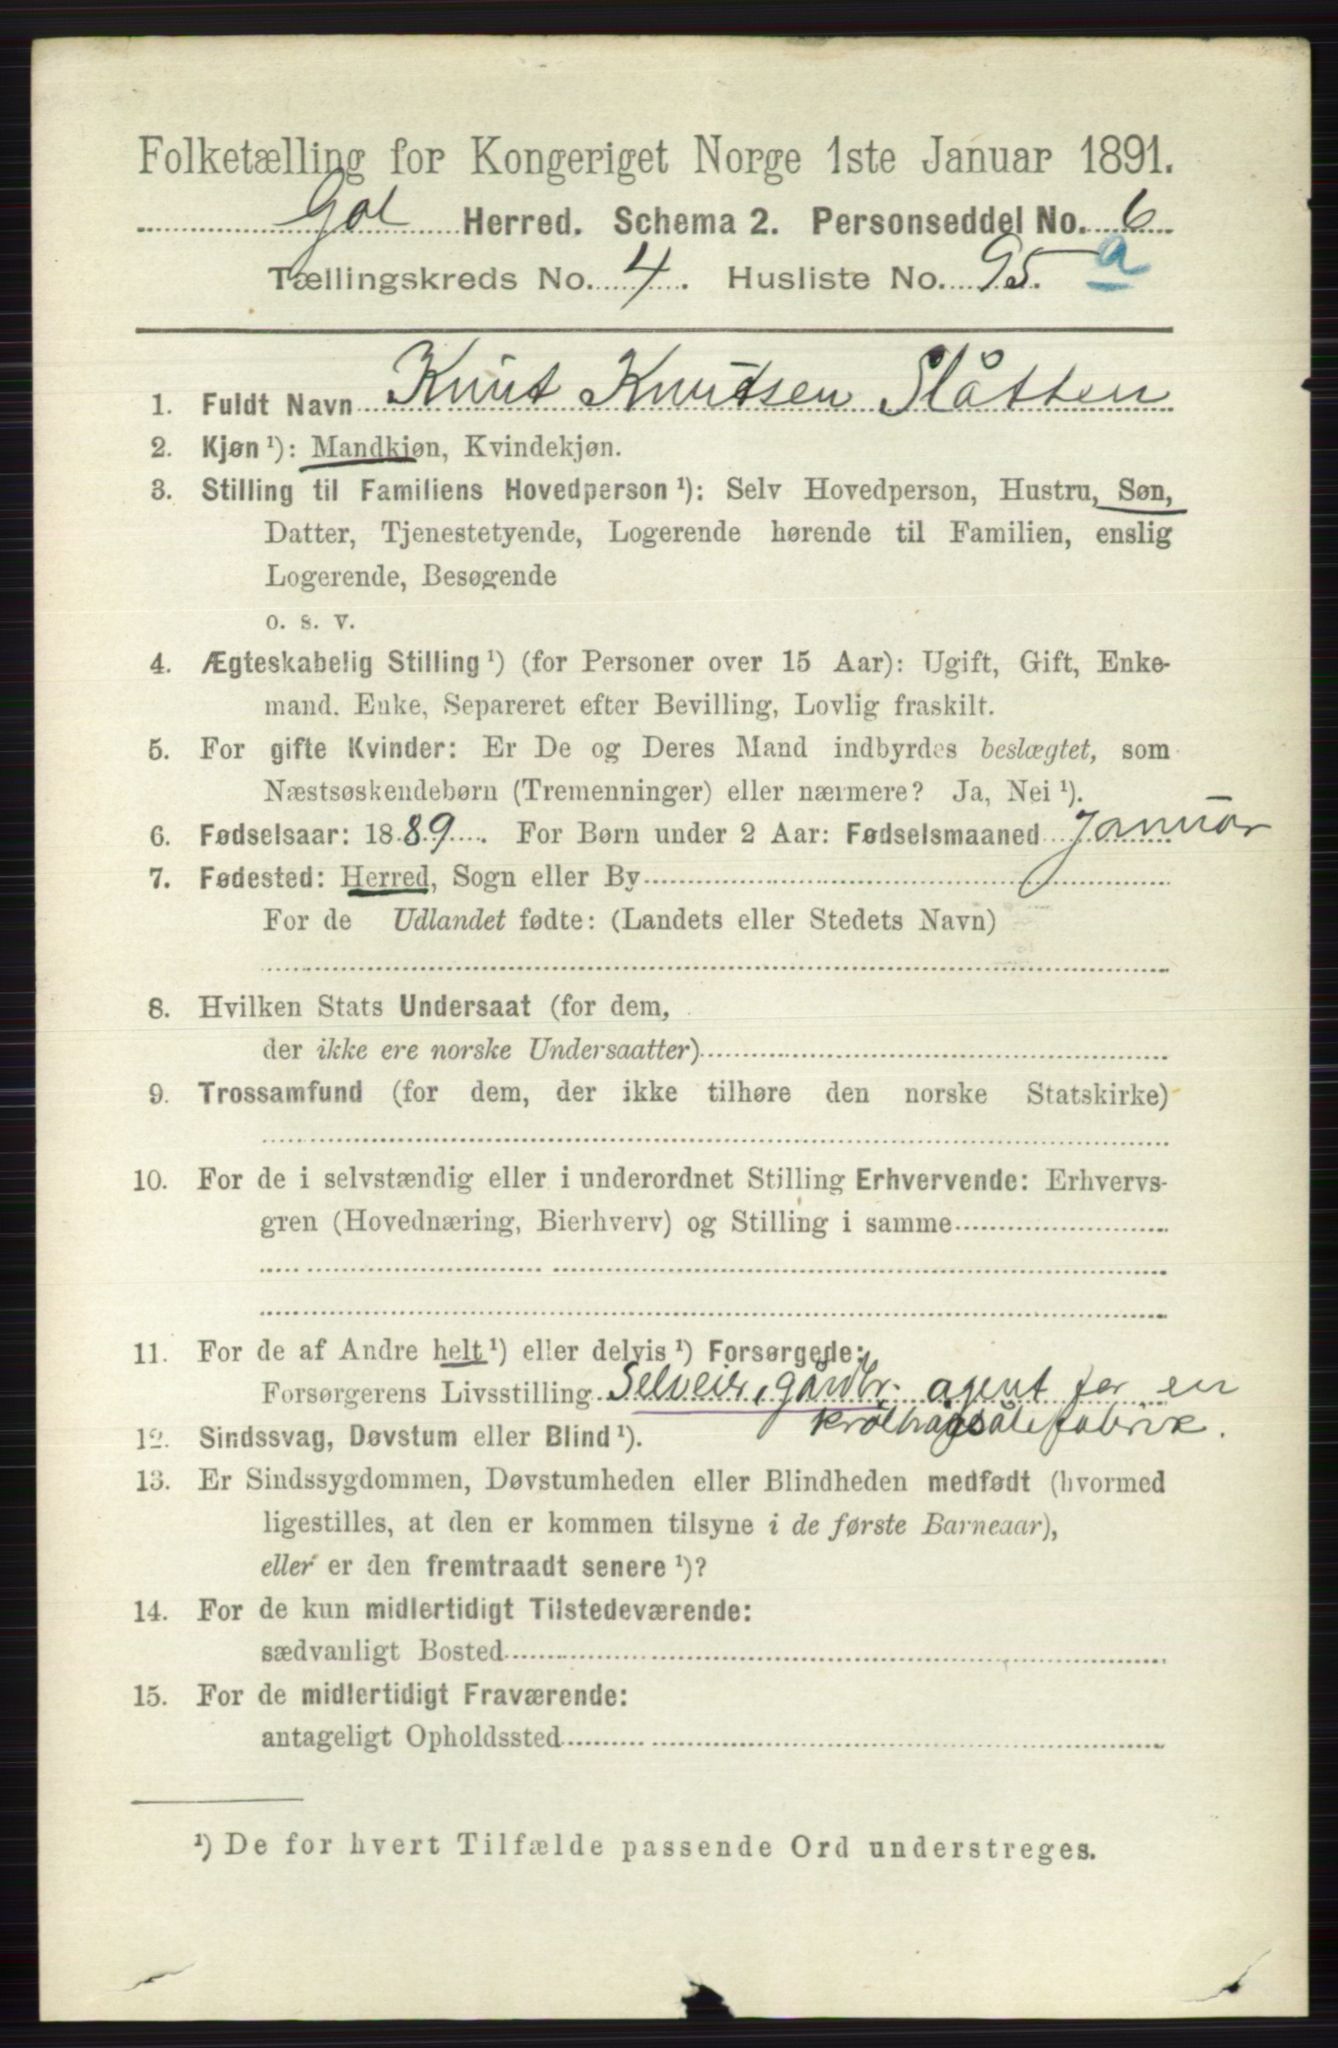 Folketælling for Kongeriget Norge 1ste Januar 1891.
Gol Herred. Schema 2. Personseddel No. 6
Tællingskreds No. 4. Husliste No. 95. a
1. Fuldt Navn Knut Knutsen Slåtten
2. Kjøn ¹): Mandkjøn, Kvindekjøn.
3. Stilling til Familiens Hovedperson ¹): Selv Hovedperson, Hustru, Søn,
Datter, Tjenestetyende, Logerende hørende til Familien, enslig
Logerende, Besøgende
o. s. v.
4. Ægteskabelig Stilling ¹) (for Personer over 15 Aar): Ugift, Gift, Enke-
mand. Enke, Separeret efter Bevilling, Lovlig fraskilt.
5. For gifte Kvinder: Er De og Deres Mand indbyrdes beslægtet, som
Næstsøskendebørn (Tremenninger) eller nærmere? Ja, Nei ¹).
6. Fødselsaar: 1889. For Børn under 2 Aar: Fødselsmaaned Januar
7. Fødested: Herred, Sogn eller By
For de Udlandet fødte: (Landets eller Stedets Navn)
8. Hvilken Stats Undersaat (for dem,
der ikke ere norske Undersaatter)
9. Trossamfund (for dem, der ikke tilhøre den norske Statskirke)
10. For de i selvstændig eller i underordnet Stilling Erhvervende: Erhvervs-
gren (Hovednæring, Bierhverv) og Stilling i samme
11. For de af Andre helt ¹) eller delvis ¹) Forsørgede:
Forsørgerens Livsstilling Selveier, gårdbr. agent for en
12. Sindssvag, Døvstum eller Blind ¹).
13. Er Sindssygdommen, Døvstumheden eller Blindheden medfødt (hvormed
ligestilles, at den er kommen tilsyne i de første Barneaar),
eller er den fremtraadt senere ¹)?
14. For de kun midlertidigt Tilstedeværende:
sædvanligt Bosted
15. For de midlertidigt Fraværende:
antageligt Opholdssted
¹) De for hvert Tilfælde passende Ord understreges.